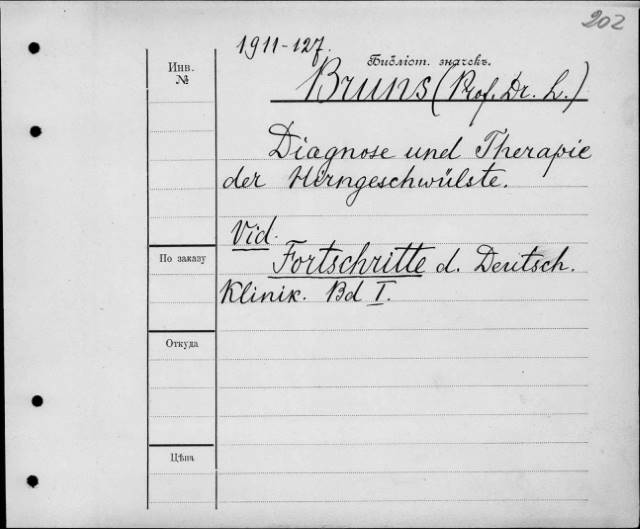 202
1911-127.
Инв.
№
Библіот. значекъ.
Bruns (Prof. Dr. L.)
Diagnose und Therapie
der Hirngeschwülste.
Vid.
По заказу
Fortschritte d. Deutsch.
Klinik. Bd I.
Откуда
Цѣна